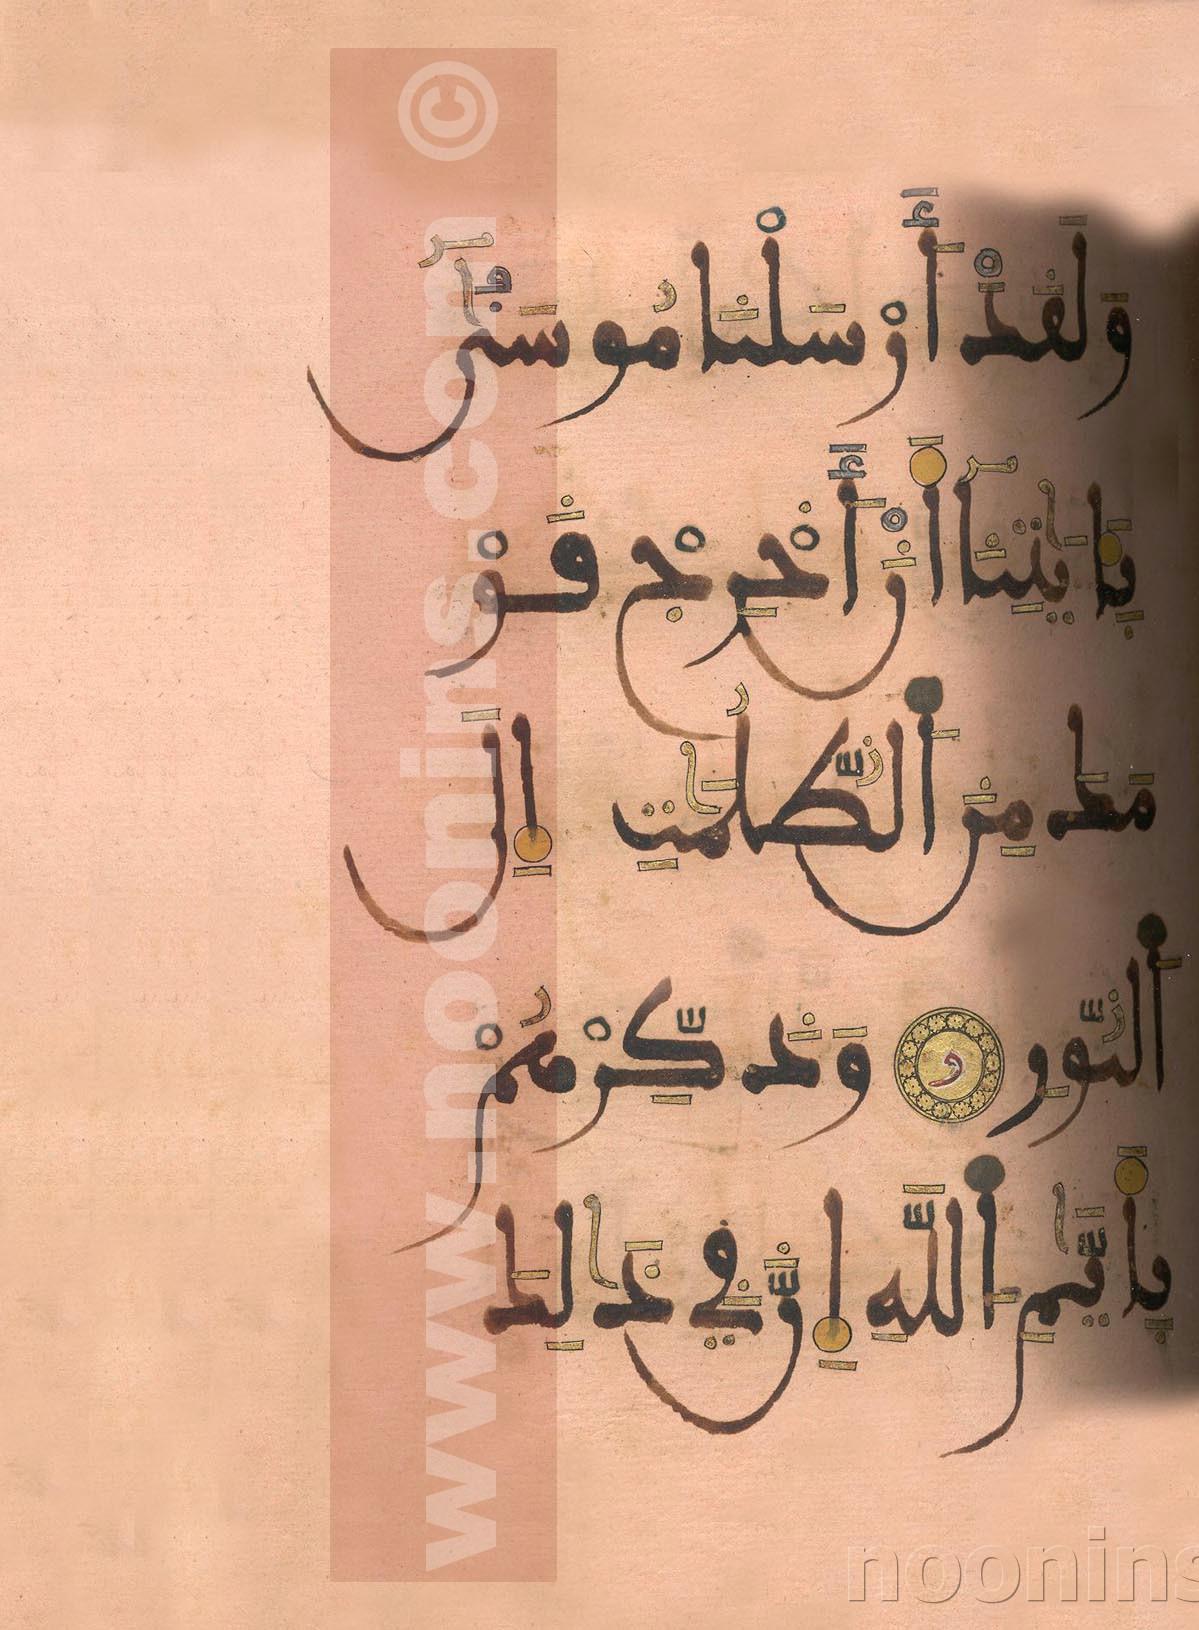 وَلَقَدْ أَرْسَلْنَا مُوسَىٰ
بِـَٔايَٰتِنَآ أَنَ اَخْرِجْ قَوْ
مَكَ مِنَ ٱلظُّلُمَٰتِ إِلَى
ٱلنُّورِ وَذَكِّرْهُمْ
بِأَيَّٰمِ ٱللَّهِ إِنَّ فِي ذَٰلِكَ
www-noonins.com ©
noonins